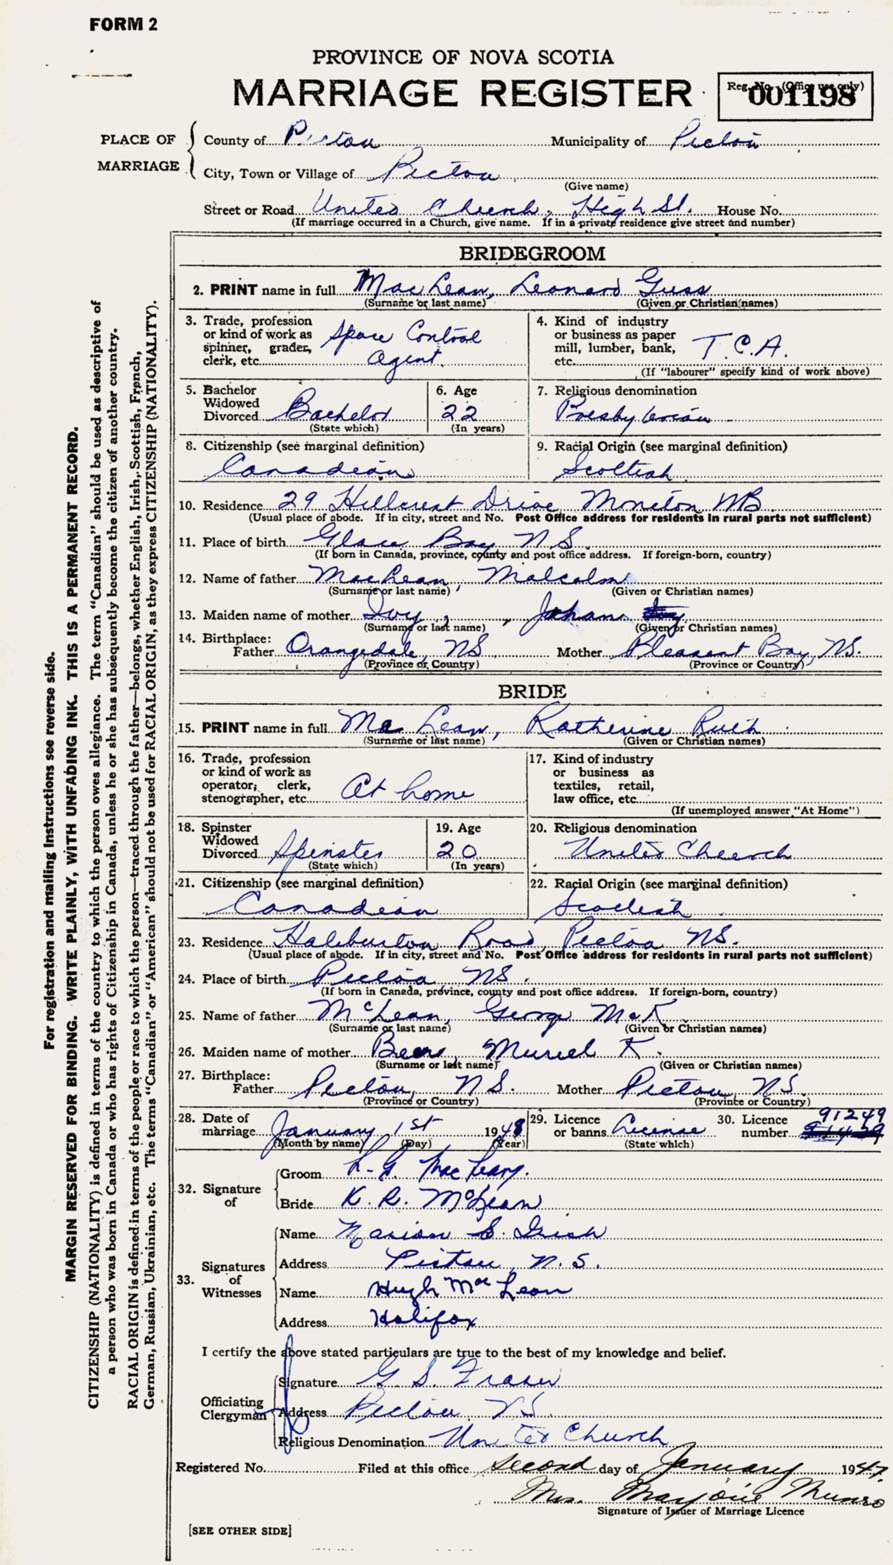 FORM 2
PROVINCE OF NOVA SCOTIA
MARRIAGE REGISTER
Reg. No. (Office use only)
001198
PLACE OF MARRIAGE
County of Pictou Municipality of Pictou
City, Town or Village of Pictou
(Give name)
Street or Road United Church, High St. House No.
(If marriage occurred in a Church, give name. If in a private residence give street and number)
BRIDEGROOM
2. PRINT name in full MacLean, Leonard Guss
(Surname or last name) (Given or Christian names)
3. Trade, profession or kind of work as spinner, grader, clerk, etc. Space Control Agent
4. Kind of industry or business as paper mill, lumber, bank, etc. T.C.A.
(If "labourer" specify kind of work above)
5. Bachelor Widowed Divorced Bachelor
(State which)
6. Age 22
(In years)
7. Religious denomination Presbyterian
8. Citizenship (see marginal definition) Canadian
9. Racial Origin (see marginal definition) Scottish
10. Residence 29 Hillcrest Drive Moncton NB
(Usual place of abode. If in city, street and No. Post Office address for residents in rural parts not sufficient)
11. Place of birth Glace Bay N.S.
(If born in Canada, province, county and post office address. If foreign-born, country)
12. Name of father MacLean, Malcolm
(Surname or last name) (Given or Christian names)
13. Maiden name of mother Ivy,
(Surname or last name) (Given or Christian names)
14. Birthplace:
Father Orangedale, NS Mother Pleasant Bay, NS.
(Province or Country) (Province or Country)
BRIDE
15. PRINT name in full McLean, Katherine Ruth
(Surname or last name) (Given or Christian names)
16. Trade, profession or kind of work as operator, clerk, stenographer, etc. At home
17. Kind of industry or business as textiles, retail, law office, etc.
(If unemployed answer "At Home")
18. Spinster Widowed Divorced Spinster
(State which)
19. Age 20
(In years)
20. Religious denomination United Church
21. Citizenship (see marginal definition) Canadian
22. Racial Origin (see marginal definition) Scottish
23. Residence Haliburton Road, Pictou NS.
(Usual place of abode. If in city, street and No. Post Office address for residents in rural parts not sufficient)
24. Place of birth Pictou NS.
(If born in Canada, province, county and post office address. If foreign-born, country)
25. Name of father McLean, George McK
(Surname or last name) (Given or Christian names)
26. Maiden name of mother Muriel K.
(Surname or last name) (Given or Christian names)
27. Birthplace:
Father Pictou, NS. Mother Pictou, NS.
(Province or Country) (Province or Country)
28. Date of marriage January 1st 1948
(Month by name) (Day) (Year)
29. Licence or banns License
(State which)
30. Licence number 91249
32. Signature of
Groom L. G. MacLean.
Bride K. R. McLean
33. Signatures of Witnesses
Name Marion
Address Pictou, N.S.
Name Hugh MacLean
Address Halifax
I certify the above stated particulars are true to the best of my knowledge and belief.
Officiating Clergyman
Signature G. S. Fraser
Address Pictou NS
Religious Denomination United Church
Registered No. Filed at this office second day of January 1947
Mrs. Marjorie Munro
Signature of Issuer of Marriage Licence
[SEE OTHER SIDE]
For registration and mailing instructions see reverse side.
MARGIN RESERVED FOR BINDING. WRITE PLAINLY, WITH UNFADING INK. THIS IS A PERMANENT RECORD.
CITIZENSHIP (NATIONALITY) is defined in terms of the country to which the person owes allegiance. The term "Canadian" should be used as descriptive of
a person who was born in Canada or who has rights of Citizenship in Canada, unless he or she has subsequently become the citizen of another country.
RACIAL ORIGIN is defined in terms of the people or race to which the person—traced through the father—belongs, whether English, Irish, Scottish, French,
German, Russian, Ukrainian, etc. The terms "Canadian" or "American" should not be used for RACIAL ORIGIN, as they express CITIZENSHIP (NATIONALITY).